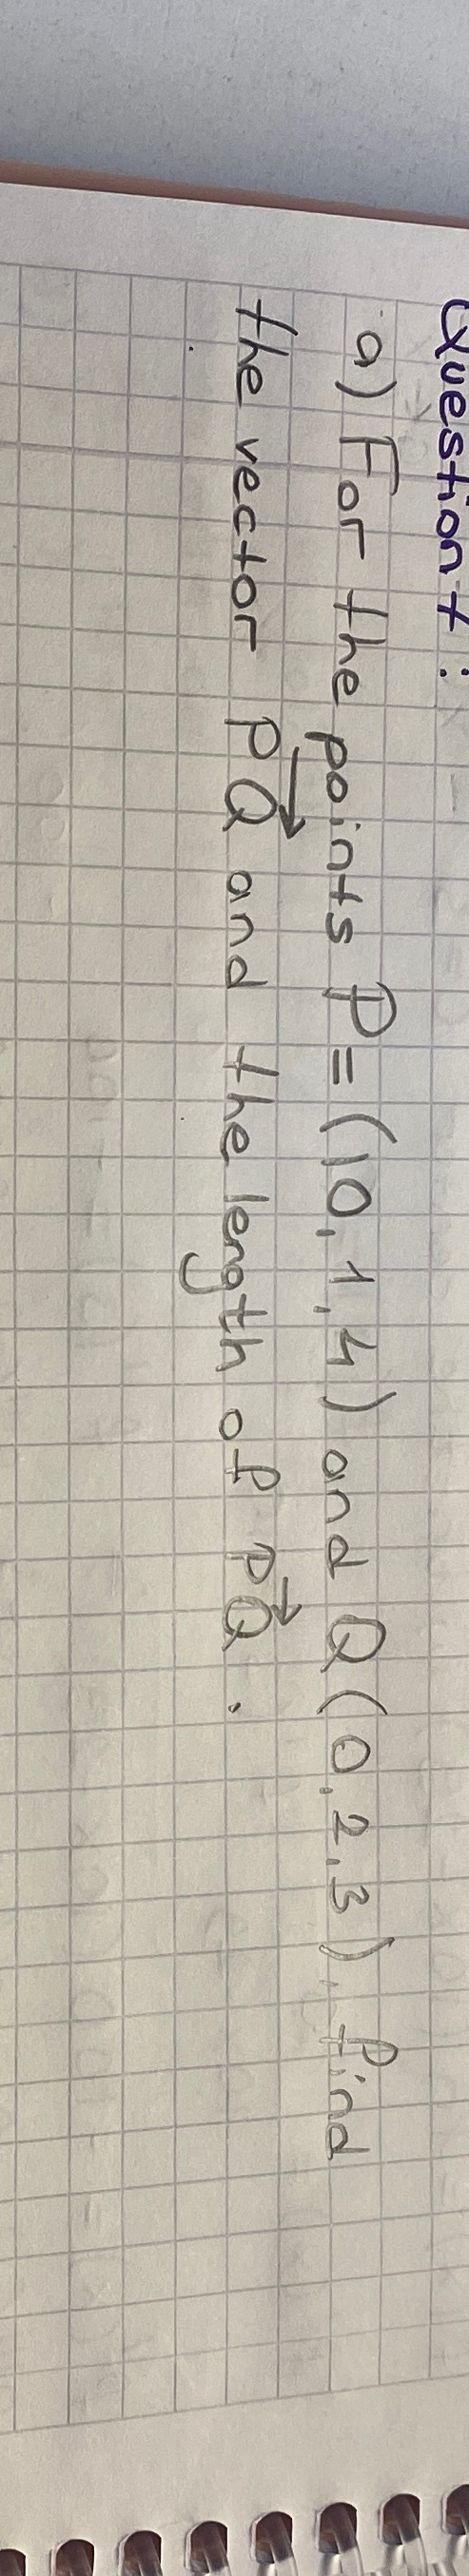 Question 1:
a) For the points P = (10, 1, 4) and Q (0, 2, 3), find
the vector PQ and the length of PQ.